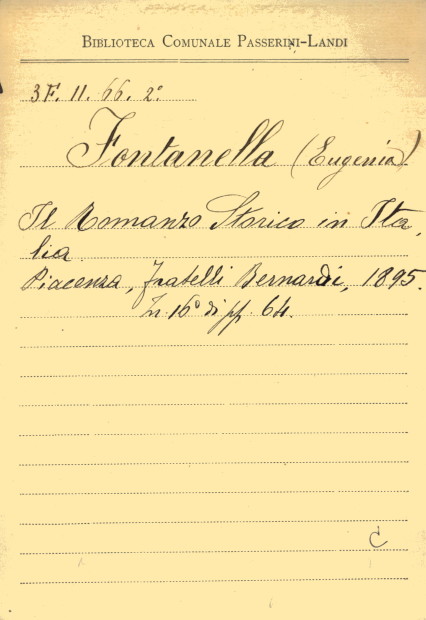 BIBLIOTECA COMUNALE PASSERINI-LANDI
3F. 11. 66. 2º
Fontanella (Eugenia)
Il Romanzo Storico in Ita,
lia.
Piacenza, Fratelli Bernardi, 1895.
In 16º di pp. 64.
C